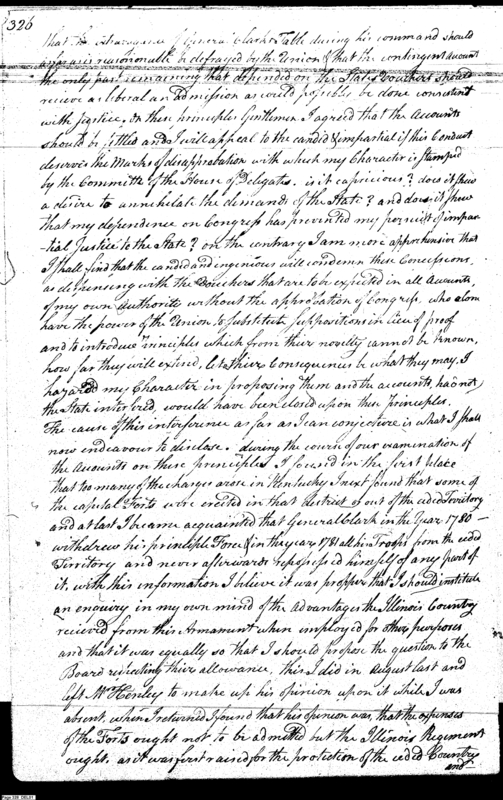 326
that the extravagance of General Clarks Table during his command should
as far as is reasonable be defrayed by the Union & that the contingent account
the only part remaining that depended on the State Vouchers should
receive as liberal an admission as could possibly be done consistent
with Justice, On these principles Gentlemen I agreed that the Accounts
should be settled and I will appeal to the candid & impartial if this Conduct
deserves the Marks of disapprobation with which my Character is stamped
by the Committe of the House of Deligates. is it capricious? does it shew
a desire to annehelate the demands of the State? and does it shew
that my dependence on Congress has prevented my persuit of impar-
-tial Justice to the State? on the contrary I am more apprehensive that
I shall find that the candid and ingenious will condemn these Concessions,
as dispensing with the Vouchers that are to be expected in all Accounts,
of my own Authority without the approbation of Congress, who alone
have the power of the Union to Substitute Suppositions in lieu of proof
and to introduce Principles which from their novelty cannot be known,
how far they will extend, let their Consequences be what they may, I
hazarded my Character in proposing them and the accounts, had not
the State interfered, would have been closed upon these Principles.
The cause of this interference as far as I can conjecture is what I shall
now endeavour to disclose. during the course of our examination of
the Accounts on these principles I found in the first place
that too many of the charges arose in Kentucky I next found that some of
the capital Forts were erected in that district & out of the ceded Territory
and at last I became acquainted that General Clark in the Year 1780-
withdrew his principle Force & in the year 1781 all his Troops from the ceded
Territory and never afterwards repossessed himself of any part of
it, with this information I believe it was propper that I should institute
an enquiry in my own mind of the advantages the Illinois Country
recieved from this Armament when imployed for other purposes
and that it was equally so that I should propose the question to the
Board respecting their allowance, this I did in August last and
left Mr Henley to make up his opinion upon it while I was
absent, when I returned I found that his opinion was, that the expenses
of the Forts ought not to be admitted but the Illinois Regiment
ought, as it was first raised for the protection of the ceded Country
and-